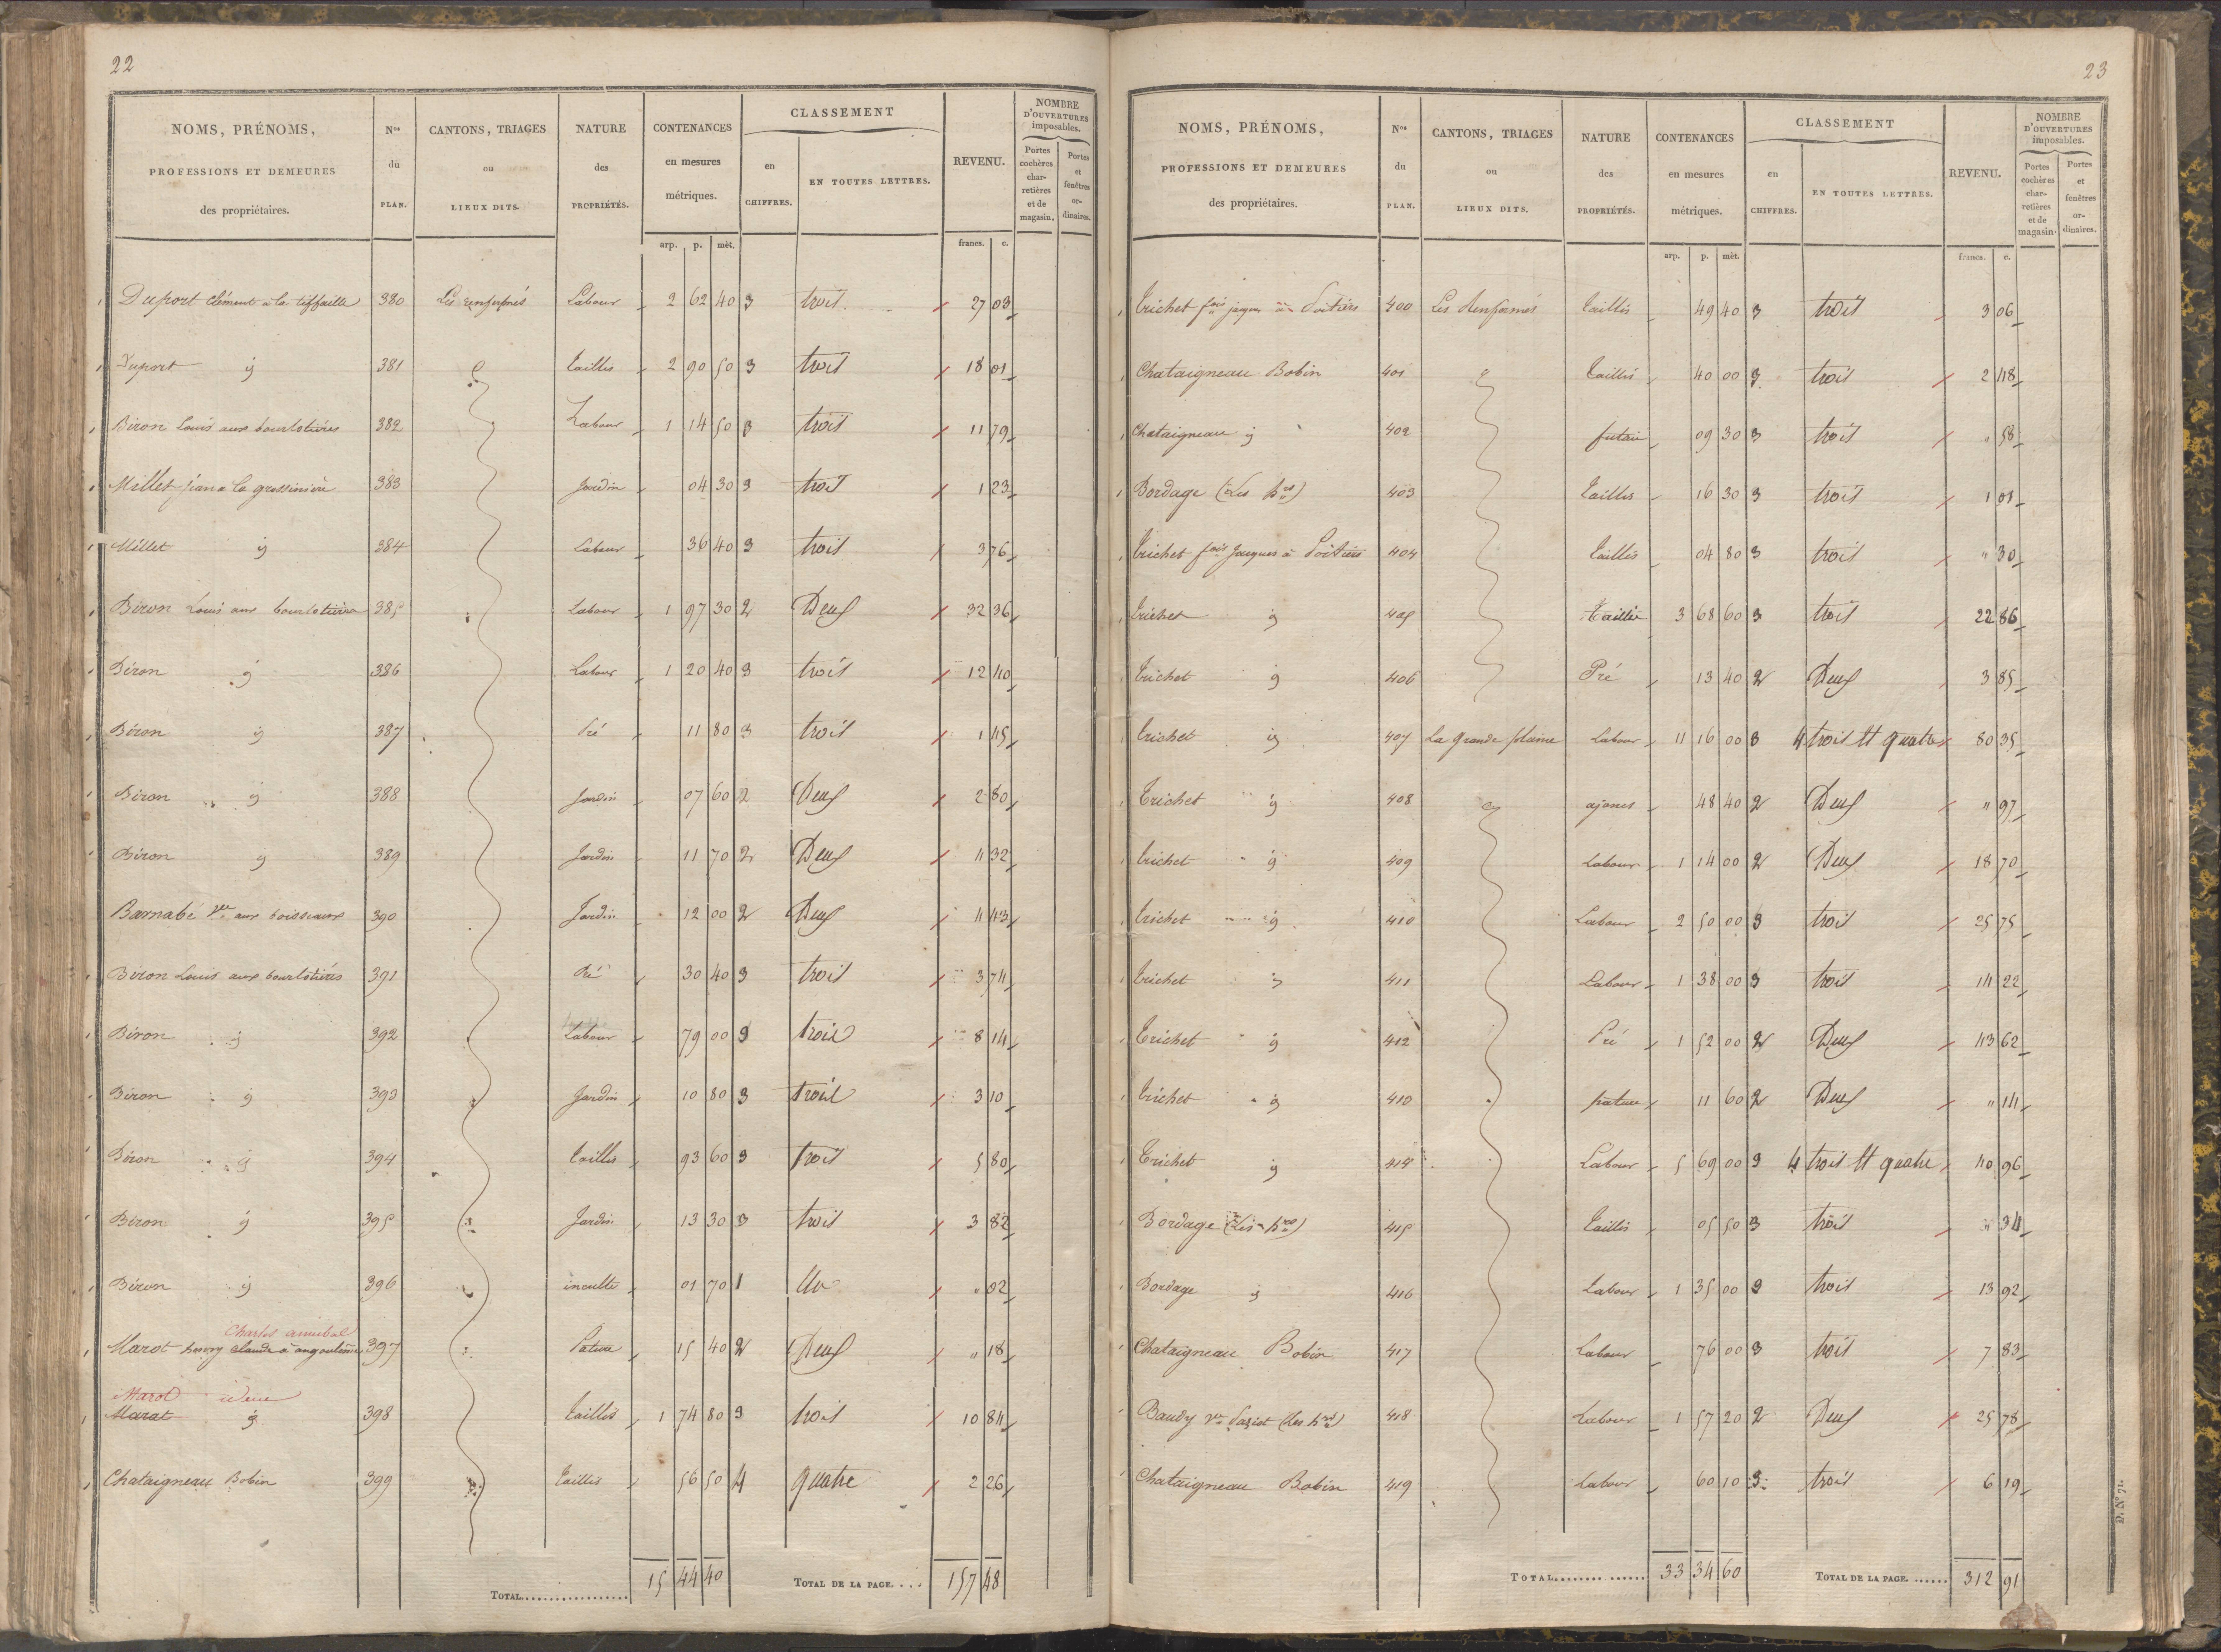 22
NOMS, PRÉNOMS, PROFESSIONS ET DEMEURES des propriétaires. | Nos du PLAN. | CANTONS, TRIAGES ou LIEUX DITS. | NATURE des PROPRIÉTÉS. | CONTENANCES en mesures métriques. | CLASSEMENT en CHIFFRES. | EN TOUTES LETTRES. | REVENU. | NOMBRE D'OUVERTURES imposables. | Portes cochères charretières et de magasin. | Portes et fenêtres ordinaires.
arp. p. mèt. francs. c.
Duport Clément a la tiffaille 380 Les renfermés Labour 2 62 40 3 trois 27 03
Duport id 381 Taillis 2 90 50 3 trois 18 01
Biron Louis aux bourlotières 382 Labour 1 14 50 3 trois 11 79
Millet jean a la grossinière 383 Jardin 04 30 3 trois 1 23
Millet id 384 Labour 36 40 3 trois 3 76
Biron Louis aux bourlotières 385 Labour 1 97 30 2 Deux 32 36
Biron id 386 Labour 1 20 40 3 trois 12 40
Biron id 387 Pré 11 80 3 trois 1 45
Biron id 388 Jardin 07 60 2 Deux 2 80
Biron id 389 Jardin 11 70 2 Deux 4 32
Barnabé Vve aux boisseaux 390 Jardin 12 00 2 Deux 4 43
Biron Louis aux bourlotières 391 Pré 30 40 3 trois 3 74
Biron id 392 Labour 79 00 3 trois 8 14
Biron id 393 Jardin 10 80 3 trois 3 10
Biron id 394 Taillis 93 60 3 trois 5 80
Biron id 395 Jardin 13 30 3 trois 3 82
Biron id 396 inculte 01 70 1 Un " 02
Charles annibal
Marot henry claude a angoulême 397 Pature 15 40 2 Deux " 18
Marot idem
Marat id 398 Taillis 1 74 80 3 trois 10 84
Chataigneau Bobin 399 Taillis 56 50 4 quatre 2 26
TOTAL 15 44 40 TOTAL DE LA PAGE 157 48
23
NOMS, PRÉNOMS, PROFESSIONS ET DEMEURES des propriétaires. | Nos du PLAN. | CANTONS, TRIAGES ou LIEUX DITS. | NATURE des PROPRIÉTÉS. | CONTENANCES en mesures métriques. | CLASSEMENT en CHIFFRES. | EN TOUTES LETTRES. | REVENU. | NOMBRE D'OUVERTURES imposables. | Portes cochères charretières et de magasin. | Portes et fenêtres ordinaires.
arp. p. mèt. francs. c.
Trichet fois jacques à Poitiers 400 Les Renfermés Taillis 49 40 3 trois 3 06
Chataigneau Bobin 401 Taillis 40 00 3 trois 2 48
Chataigneau id 402 futaie 09 30 3 trois " 58
Bordage (Les hers) 403 Taillis 16 30 3 trois 1 01
Trichet fois Jacques à Poitiers 404 Taillis 04 80 3 trois " 30
Trichet id 405 Taillis 3 68 60 3 trois 22 86
Trichet id 406 Pré 13 40 2 Deux 3 85
Trichet id 407 La grande plaine Labour 11 16 00 3 4 trois et quatre 80 35
Trichet id 408 ajoncs 48 40 2 Deux " 97
Trichet id 409 Labour 1 14 00 2 Deux 18 70
Trichet id 410 Labour 2 50 00 3 trois 25 75
Trichet id 411 Labour 1 38 00 3 trois 14 22
Trichet id 412 Pré 1 52 00 2 Deux 43 62
Trichet id 413 pature 11 60 2 Deux " 14
Trichet id 414 Labour 5 69 00 3 4 trois et quatre 40 96
Bordage (Les hers) 415 Taillis 05 50 3 trois " 34
Bordage id 416 Labour 1 35 00 3 trois 13 92
Chataigneau Bobin 417 Labour 76 00 3 trois 7 83
Baudy Ve (Les hers) 418 Labour 1 57 20 2 Deux 25 78
Chataigneau Bobin 419 Labour 60 10 3 trois 6 19
TOTAL 33 34 60 TOTAL DE LA PAGE 312 91
D. No 71.